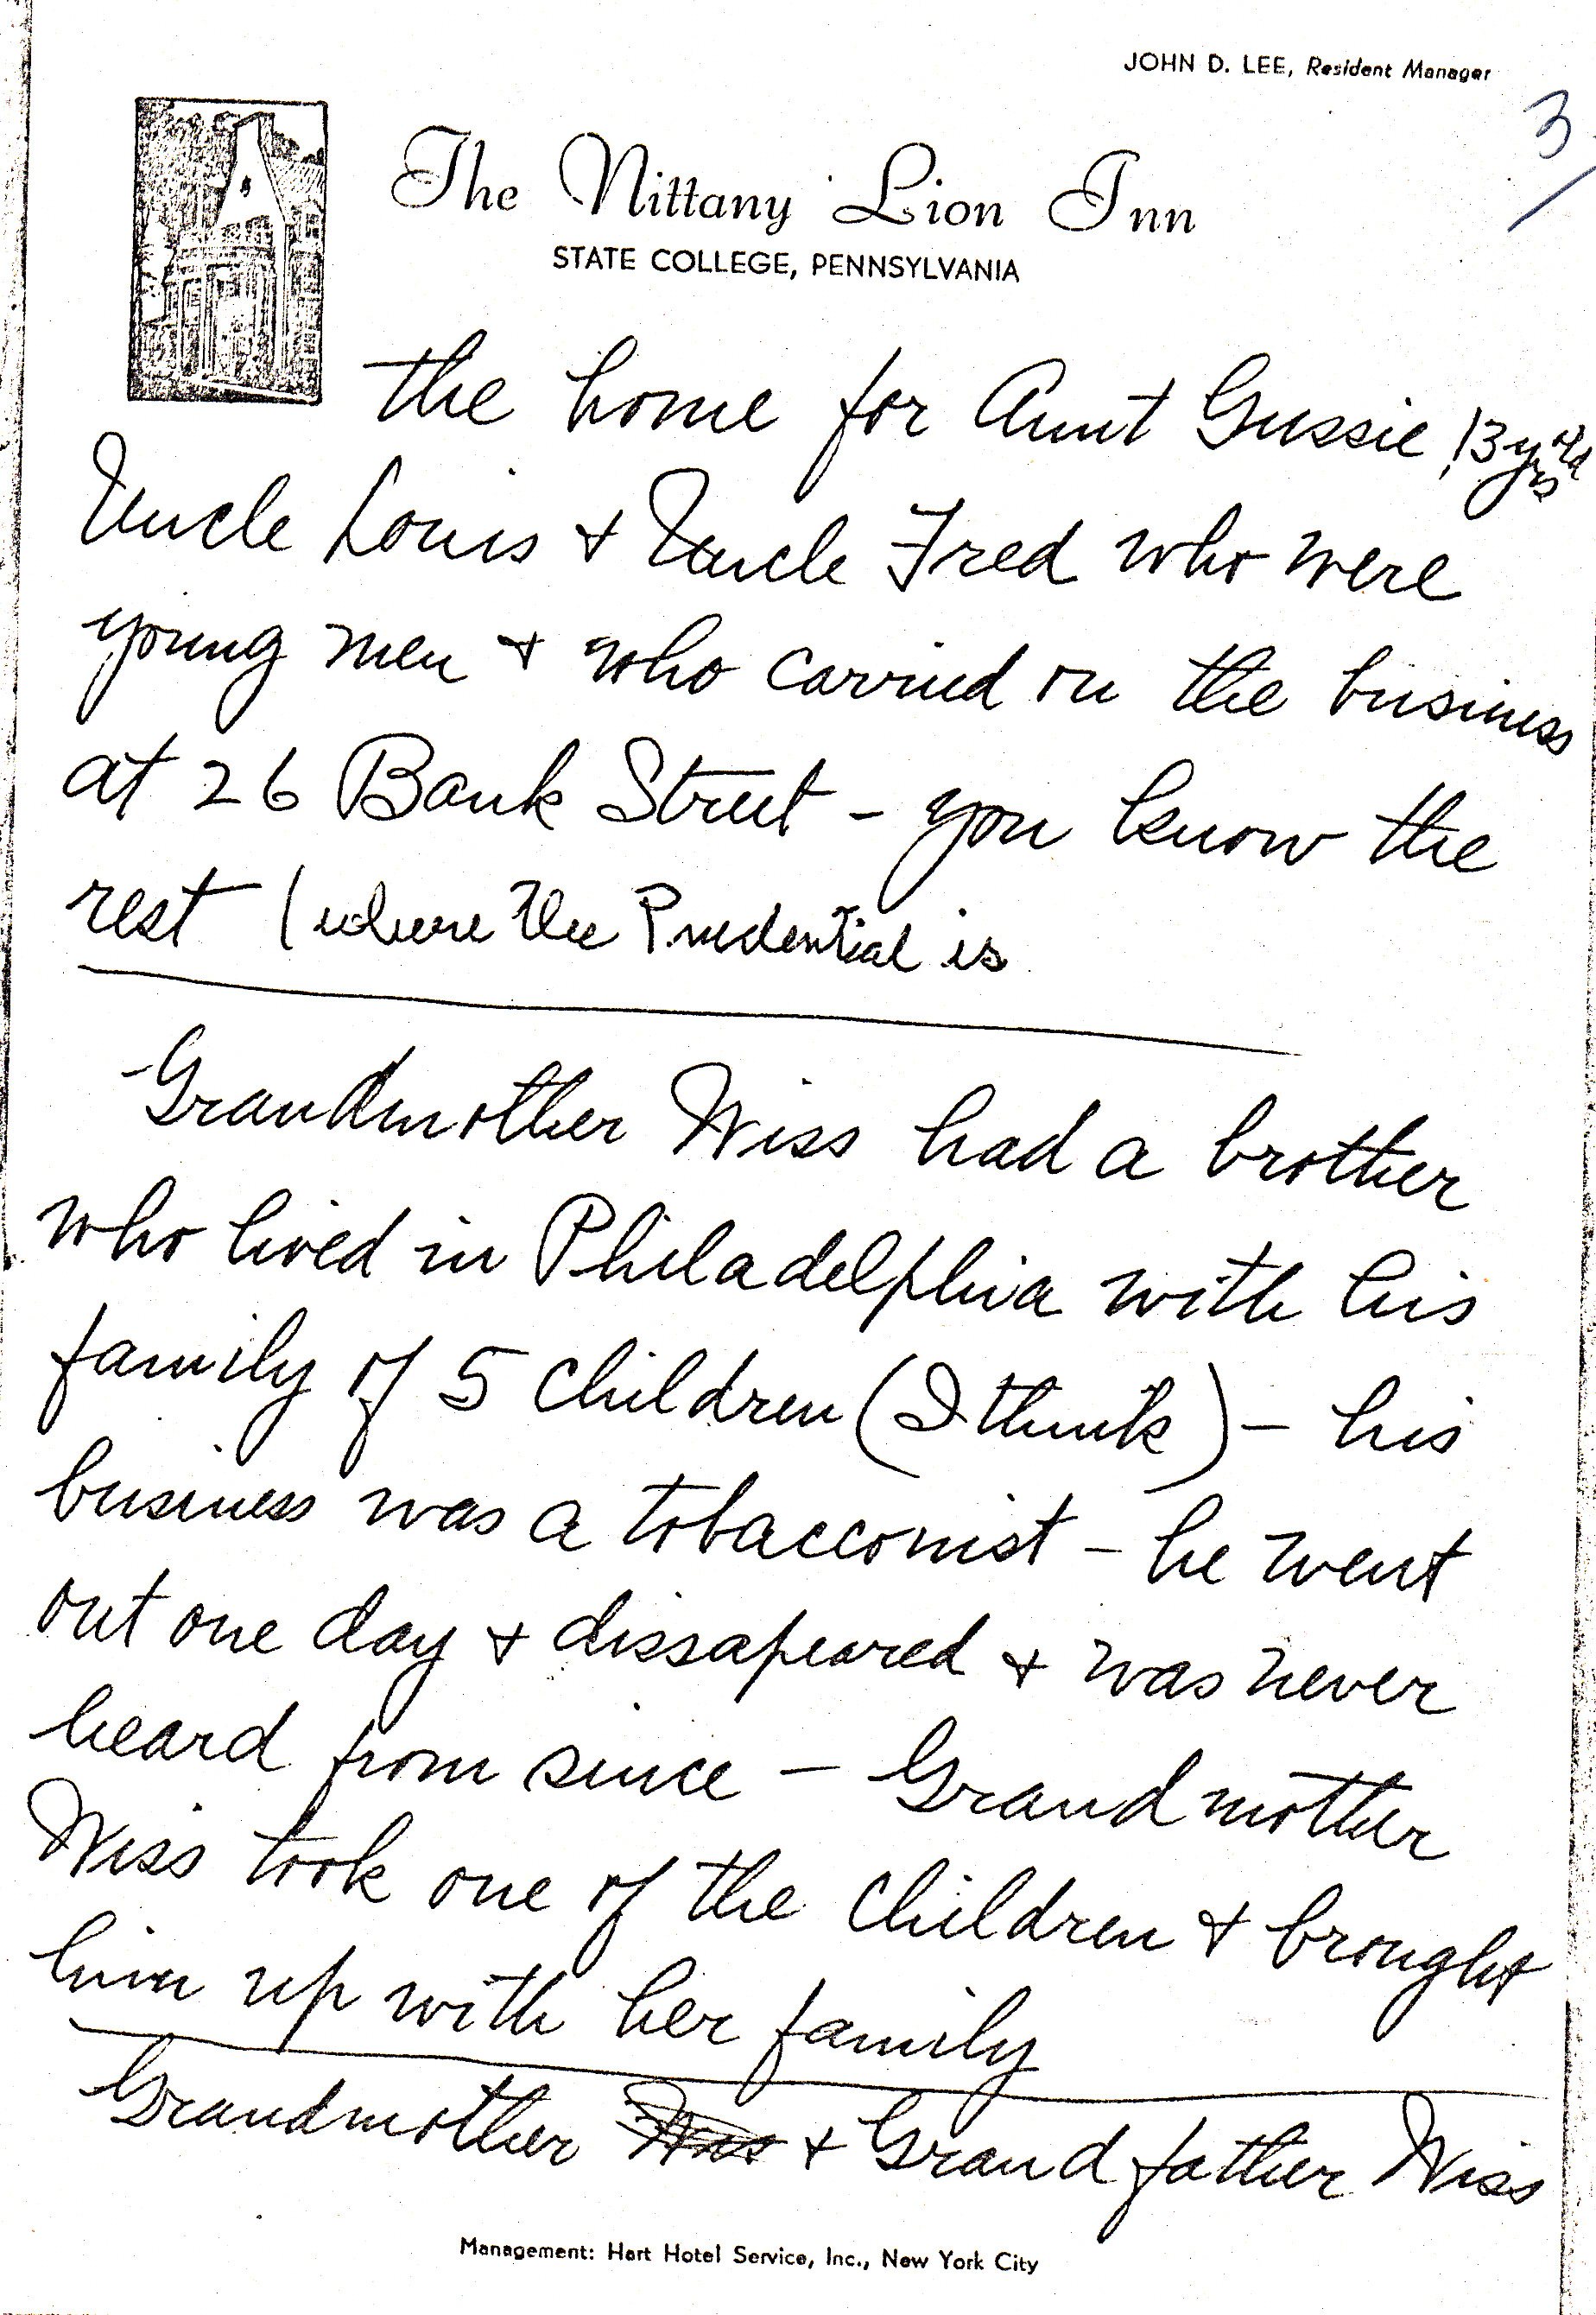 JOHN D. LEE, Resident Manager
3
The Nittany Lion Inn
STATE COLLEGE, PENNSYLVANIA
the home for Aunt Gussie 13 yrs old
Uncle Louis + Uncle Fred who were
young men + who carried on the business
at 26 Bank Street - you know the
rest ( where the Prudential is
Grandmother Wiss had a brother
who lived in Philadelphia with his
family of 5 children (I think) - his
business was a tobacconist - he went
out one day + dissapeared + was never
heard from since - Grandmother
Wiss took one of the children + brought
him up with her family
Grandmother Wiss + Grandfather Wiss
Management: Hart Hotel Service, Inc., New York City